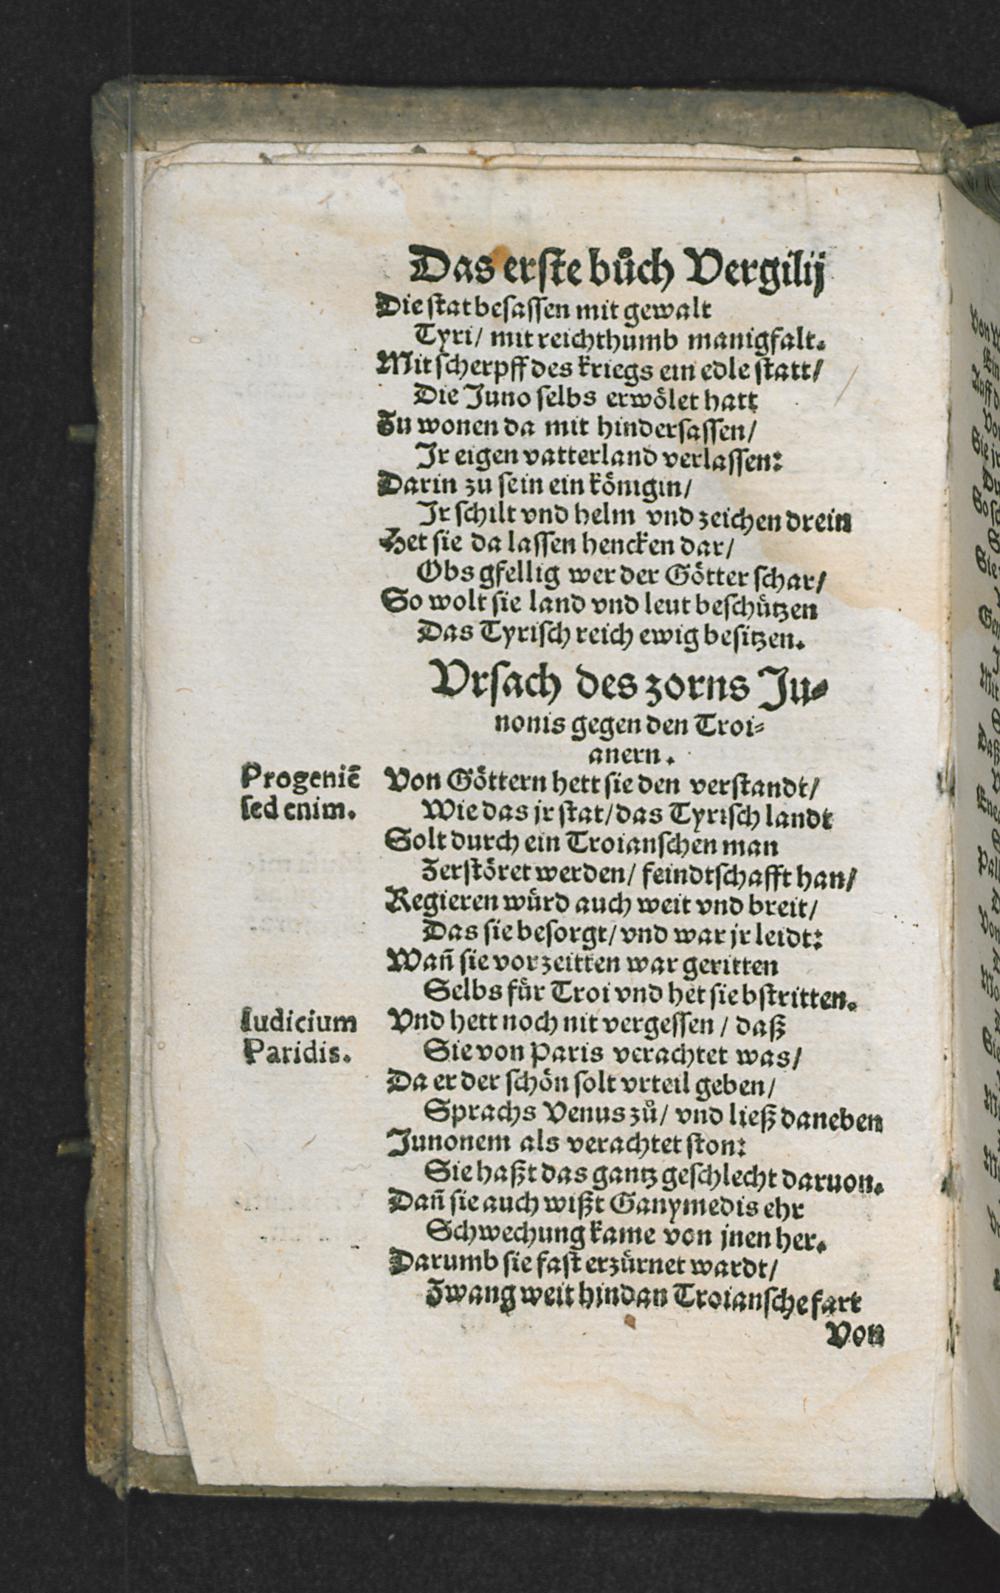 Das erste bůch Vergilij
Die stat besassen mit gewalt
Tyri/ mit reichthumb manigfalt.
Mit scherpff des kriegs ein edle statt/
Die Juno selbs erwölet hatt
Zu wonen da mit hindersassen/
Jr eigen vatterland verlassen:
Darin zu sein ein königin/
Jr schilt vnd helm vnd zeichen drein
Het sie da lassen hencken dar/
Obs gfellig wer der Götter schar/
So wolt sie land vnd leut beschützen
Das Tyrisch reich ewig besitzen.
Vrsach des zorns Ju⸗
nonis gegen den Troi⸗
anern.
Progeniē
sed enim.
Von Göttern hett sie den verstandt/
Wie das jr stat/ das Tyrisch landt
Solt durch ein Troianschen man
Zerstöret werden/ feindtschafft han/
Regieren würd auch weit vnd breit/
Das sie besorgt/ vnd war jr leidt:
Wañ sie vorzeitten war geritten
Selbs für Troi vnd het sie bstritten.
Iudicium
Paridis.
Vnd hett noch nit vergessen/ daß
Sie von Paris verachtet was/
Da er der schön solt vrteil geben/
Sprachs Venus zů/ vnd ließ daneben
Junonem als verachtet ston:
Sie haßt das gantz geschlecht daruon.
Dañ sie auch wißt Ganymedis ehr
Schwechung kame von jnen her.
Darumb sie fast erzürnet wardt/
Zwang weit hindan Troiansche fart
Von